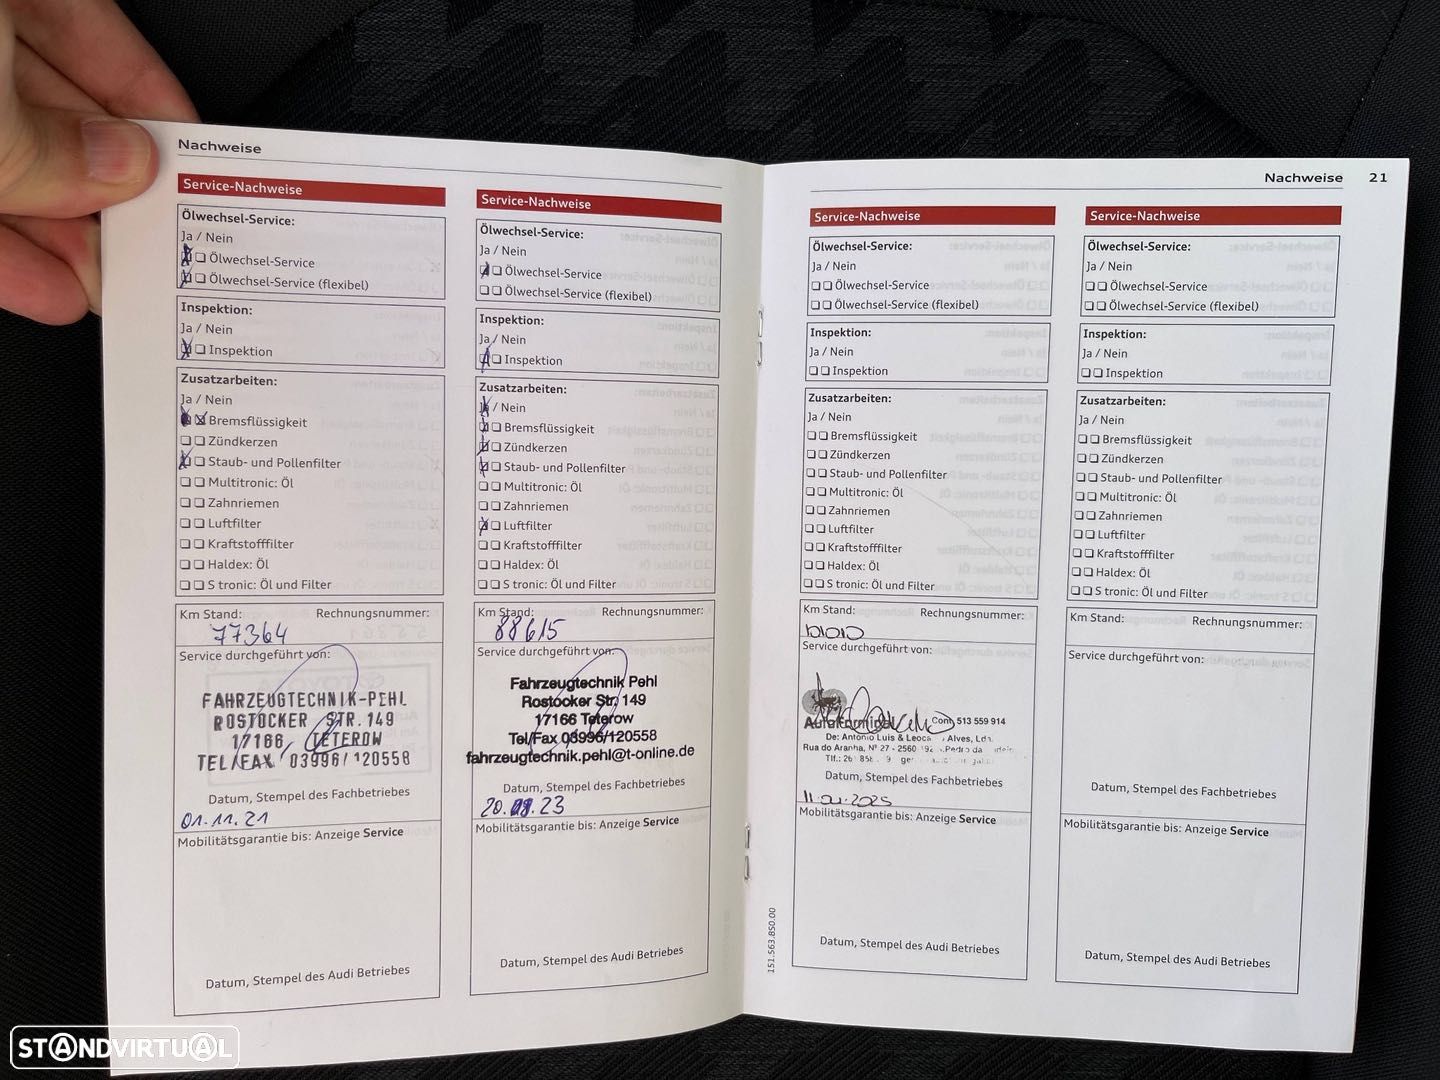 Nachweise
Service-Nachweise
Ölwechsel-Service:
Ja / Nein
Ölwechsel-Service
Ölwechsel-Service (flexibel)
Inspektion:
Ja / Nein
Inspektion
Zusatzarbeiten:
Ja / Nein
Bremsflüssigkeit
Zündkerzen
Staub- und Pollenfilter
Multitronic: Öl
Zahnriemen
Luftfilter
Kraftstofffilter
Haldex: Öl
S tronic: Öl und Filter
Km Stand: Rechnungsnummer:
77364
Service durchgeführt von:
FAHRZEUGTECHNIK-PEHL
ROSTOCKER STR.149
17166, TETEROW
TEL/FAX 03996/120558
Datum, Stempel des Fachbetriebes
01.11.21
Mobilitätsgarantie bis: Anzeige Service
Datum, Stempel des Audi Betriebes
Service-Nachweise
Ölwechsel-Service:
Ja / Nein
Ölwechsel-Service
Ölwechsel-Service (flexibel)
Inspektion:
Ja / Nein
Inspektion
Zusatzarbeiten:
Ja / Nein
Bremsflüssigkeit
Zündkerzen
Staub- und Pollenfilter
Multitronic: Öl
Zahnriemen
Luftfilter
Kraftstofffilter
Haldex: Öl
S tronic: Öl und Filter
Km Stand: Rechnungsnummer:
88615
Service durchgeführt von:
Fahrzeugtechnik Pehl
Rostocker Str. 149
17166 Teterow
Tel/Fax 03996/120558
fahrzeugtechnik.pehl@t-online.de
Datum, Stempel des Fachbetriebes
Mobilitätsgarantie bis: Anzeige Service
Datum, Stempel des Audi Betriebes
Nachweise 21
Service-Nachweise
Ölwechsel-Service:
Ja / Nein
Ölwechsel-Service
Ölwechsel-Service (flexibel)
Inspektion:
Ja / Nein
Inspektion
Zusatzarbeiten:
Ja / Nein
Bremsflüssigkeit
Zündkerzen
Staub- und Pollenfilter
Multitronic: Öl
Zahnriemen
Luftfilter
Kraftstofffilter
Haldex: Öl
S tronic: Öl und Filter
Km Stand: Rechnungsnummer:
Service durchgeführt von:
Cont. 513 559 914
De: António Luis & Alves, Lda.
Rua do Aranha, Nº 27 - 2560
Datum, Stempel des Fachbetriebes
Mobilitätsgarantie bis: Anzeige Service
Datum, Stempel des Audi Betriebes
151.563.850.00
Service-Nachweise
Ölwechsel-Service:
Ja / Nein
Ölwechsel-Service
Ölwechsel-Service (flexibel)
Inspektion:
Ja / Nein
Inspektion
Zusatzarbeiten:
Ja / Nein
Bremsflüssigkeit
Zündkerzen
Staub- und Pollenfilter
Multitronic: Öl
Zahnriemen
Luftfilter
Kraftstofffilter
Haldex: Öl
S tronic: Öl und Filter
Km Stand: Rechnungsnummer:
Service durchgeführt von:
Datum, Stempel des Fachbetriebes
Mobilitätsgarantie bis: Anzeige Service
Datum, Stempel des Audi Betriebes
STANDVIRTUAL